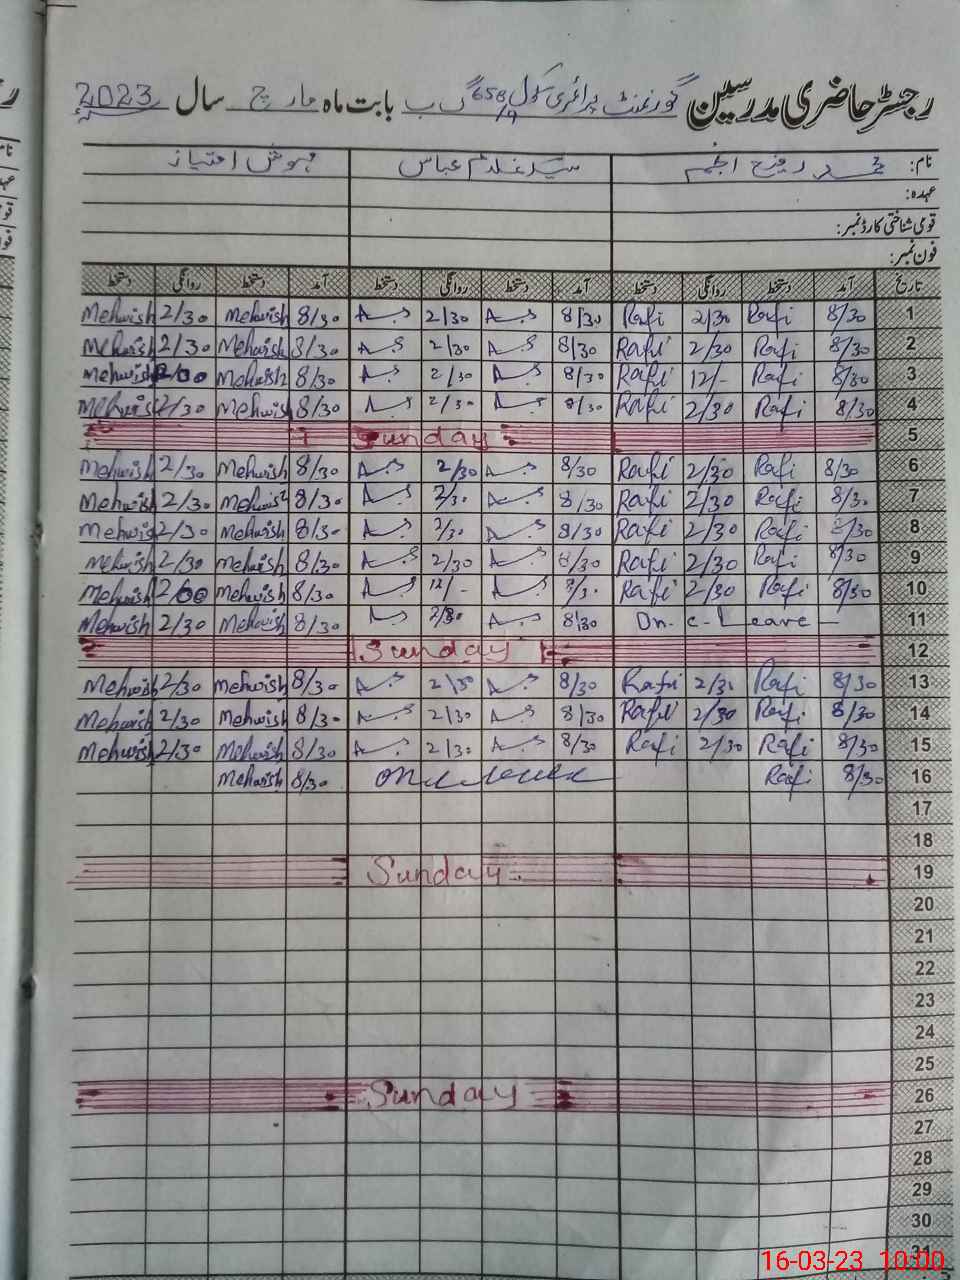 رجسٹر حاضری مدرسین گورنمنٹ پرائمری سکول 658/9 گ ب بابت ماہ مارچ سال 2023
نام: محمد رفیع انجم سید غلام عباس مہوش امتیاز
عہدہ:
قومی شناختی کارڈ نمبر:
فون نمبر:
تاریخ آمد دستخط روانگی دستخط آمد دستخط روانگی دستخط آمد دستخط روانگی دستخط
1 8/30 Rafi 2/30 Rafi 8/30 2/30 8/30 Mehwish 2/30 Mehwish
2 8/30 Rafi 2/30 Rafi 8/30 2/30 8/30 Mehwish 2/30 Mehwish
3 8/30 Rafi 12/- Rafi 8/30 2/30 8/30 Mehwish Mehwish
4 8/30 Rafi 2/30 Rafi 8/30 2/30 8/30 Mehwish 2/30 Mehwish
5 Sunday
6 8/30 Rafi 2/30 Rafi 8/30 2/30 8/30 Mehwish 2/30 Mehwish
7 8/30 Rafi 2/30 Rafi 8/30 2/30 8/30 Mehwish 2/30 Mehwish
8 8/30 Rafi 2/30 Rafi 8/30 2/30 8/30 Mehwish 2/30 Mehwish
9 8/30 Rafi 2/30 Rafi 8/30 2/30 8/30 Mehwish 2/30 Mehwish
10 8/30 Rafi 2/30 Rafi 12/- 8/30 Mehwish 2/00 Mehwish
11 On - C - Leave - 8/30 2/30 8/30 Mehwish 2/30 Mehwish
12 Sunday
13 8/30 Rafi 2/30 Rafi 8/30 2/30 8/30 Mehwish 2/30 Mehwish
14 8/30 Rafi 2/30 Rafi 8/30 2/30 8/30 Mehwish 2/30 Mehwish
15 8/30 Rafi 2/30 Rafi 8/30 2/30 8/30 Mehwish 2/30 Mehwish
16 8/30 Rafi 8/30 Mehwish
17
18
19 Sunday
20
21
22
23
24
25
26 Sunday
27
28
29
30
31
16-03-23 10:00